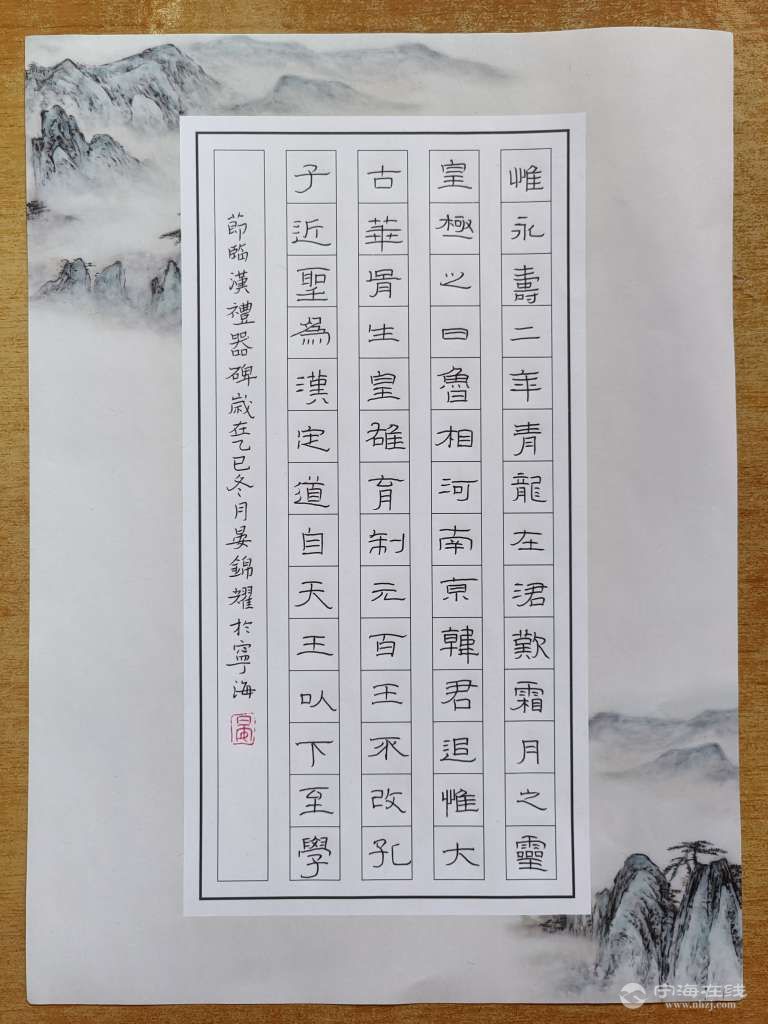 惟永壽二年青龍在涒歎霜月之靈
皇極之日魯相河南亰韓君追惟大
古華胥生皇雄育制元百王不改孔
子近聖為漢定道自天王以下至學
節臨漢禮器碑歲在乙巳冬月晏錦耀於寧海
宁海在线
www.nhzj.com